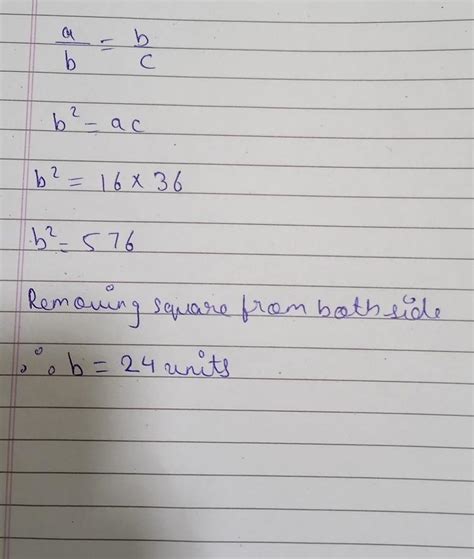 a/b = b/c
b² = ac
b² = 16 × 36
b² = 576
Removing square from both side
∴ b = 24 units